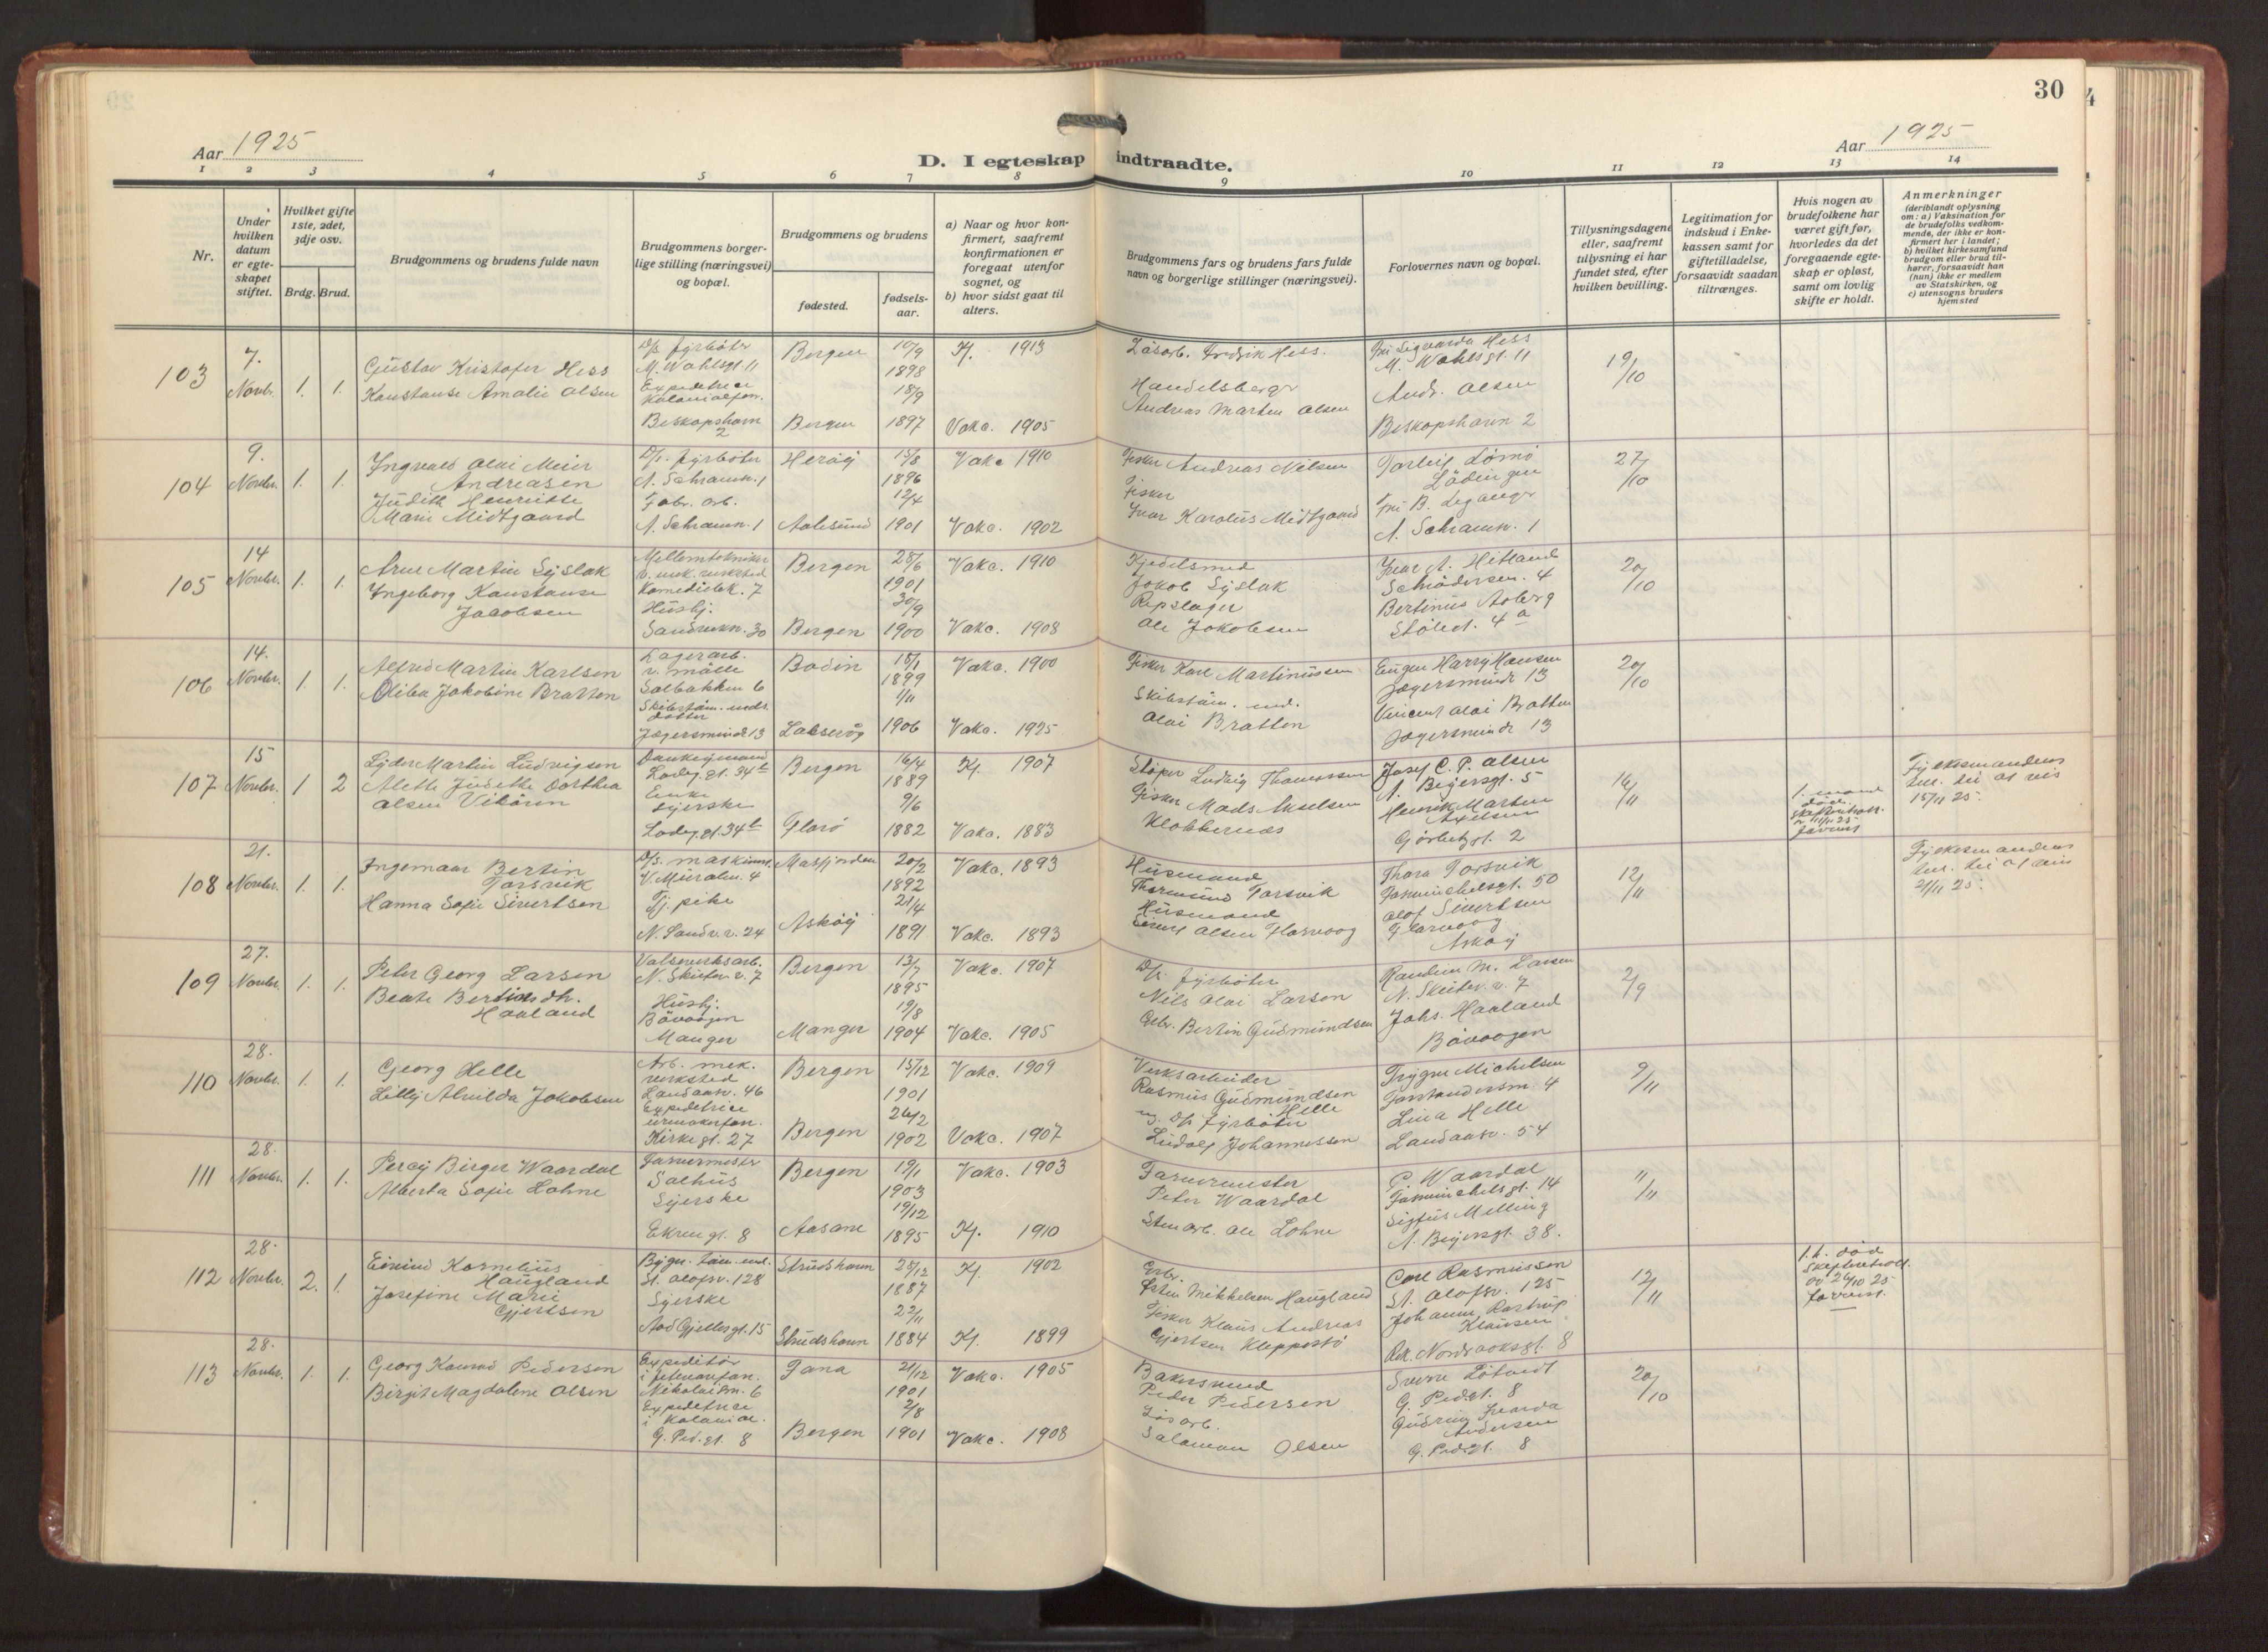 30
Aar 1925
Aar 1925
D. I egteskap indtraadte.
1 2 3 4 5 6 7 8 9 10 11 12 13 14
Nr.
Under
hvilken
datum
er egte-
skapet
stiftet.
Hvilket gifte
1ste, 2det,
3dje osv.
Brdg. Brud.
Brudgommens og brudens fulde navn
Brudgommens borger-
lige stilling (næringsvei)
og bopæl.
Brudgommens og brudens
fødested.
fødsels-
aar.
a) Naar og hvor kon-
firmert, saafremt
konfirmationen er
foregaat utenfor
sognet, og
b) hvor sidst gaat til
alters.
Brudgommens fars og brudens fars fulde
navn og borgerlige stillinger (næringsvei).
Forlovernes navn og bopæl.
Tillysningsdagene
eller, saafremt
tillysning ei har
fundet sted, efter
hvilken bevilling.
Legitimation for
indskud i Enke-
kassen samt for
giftetilladelse,
forsaavidt saadan
tiltrænges.
Hvis nogen av
brudefolkene har
været gift før,
hvorledes da det
foregaaende egte-
skap er opløst,
samt om lovlig
skifte er holdt.
Anmerkninger
(deriblandt oplysning
om: a) Vaksination for
de brudefolks vedkom-
mende, der ikke er kon-
firmert her i landet;
b) hvilket kirkesamfund
brudgom eller brud til-
hører, forsaavidt han
(hun) ikke er medlem
av Statskirken, og
c) utensogns bruders
hjemsted
103
7.
Novbr. 1. 1.
Gustav Kristofer Hess
Konstanse Amalie Olsen
D/s fyrbøter
M. Wahlsgt. 11
Expeditrice
Kolonialfor.
Biskopshavn
2
Bergen
Bergen
10/9
1898
18/9
1897
Kf. 1913
Vakc. 1905
Løsarb. Fredrik Hess.
Handelsborger
Andreas Marten Olsen
Fru Sigvarda Hess
M. Wahlsgt. 11
Andr. Olsen
Biskopshavn 2
19/10
104
9.
Novbr. 1. 1.
Ingvald Olai Meier
Andreasen
Judith Henriette
Marie Midtgaard
D/s. fyrbøter
A. Schramm. 1
Fabr. arb.
A. Schramm. 1
Herøy
Aalesund
15/8
1896
12/4
1901
Vakc 1910
Vakc. 1902
Fisker Andreas Nilsen
Fisker
Ivar Karolus Midtgaard
Lødingen
Fru B. Leganger
A. Schramm. 1
27/10
105
14
Novbr. 1. 1.
Arne Martin Lyslak
Ingeborg Konstanse
Jacobsen
Mellemtekniker
v. mek. verksted
Komediebk. 7
Husbj.
Sandvikn. 30
Bergen
Bergen
28/6
1901
30/9
1900
Vakc. 1910
Vakc. 1908
Kjedelsmed
Jakob Lyslak
Repslager
Ole Jakobsen
Ivar A. Hitland
Schrødersm. 4
Bertinus Aaberg
Støled. 4 a
20/10
106
14.
Novbr. 1. 1.
Alfred Martin Karlsen
Oliba Jakobine Bratten
Lagerarb.
v. mølle
Solbakken 6
Skibstøm. mds.
datter
Jægersminde 13
Bodin
Laksevåg
15/1
1899
1/11
1906
Vakc. 1900
Vakc. 1925
Fisker Karl Martinussen
Skibstøm. md.
Olai Bratten
Eugen Harry Hansen
Jægersminde 13
Vincent Olai Bratten
Jægersminde 13
20/10
107
15
Novbr. 1 2
Lyder Martin Ludvigsen
Alette Judithe Dorthea
Olsen Vikøren
Dankeymand
Lodeg.gt. 34 b
Enke
syerske
Lodeg.gt. 34 b
Bergen
Florø
16/4
1889
9/6
1882
Kf. 1907
Vakc. 1883
Støper Ludvig Thomassen
Fisker Mads Akselsen
Klobbernes
Josef C. P. Olsen
A. Beyersgt. 5
Henrik Marten
Axelsen
Gørbitzgt. 2
16/11
1. mand
død.
Skifteretsatt.
v. 11/11 25
forevist
Fylkesmandens
bev. til at vies
15/11 25.
108
21.
Novbr. 1. 1.
Ingemar Bertin
Torsvik
Hanna Sofie Sivertsen
D/s. maskinist
V. Muralm. 4
Tj. pike
N. Sandv.v. 24
Masfjorden
Askøy
20/2
1892
21/4
1891
Vakc. 1893
Vakc. 1893
Husmand
Thormund Torsvik
Husmand
Sivert Olsen Florvaag
Thora Torsvik
Formichelsgt. 50
Olaf Sivertsen
Florvaag
Askøy
12/11
Fylkesmandens
bev. til at vies
21/11 25.
109
27.
Novbr. 1. 1.
Peter Georg Larsen
Beate Bertinsdtr.
Haaland
Valseverksarb.
N. Skutev.v. 7
Husbj.
Bøvaagen
Manger
Bergen
Manger
13/7
1895
19/8
1904
Vakc. 1907
Vakc. 1905
D/s fyrbøter
Nils Olai Larsen
Gbr. Bertin Gudmundsen
Randine M. Larsen
N. Skutev.v. 7
Johs. Haaland
Bøvaagen
2/9
110
28.
Novbr. 1. 1.
Georg Helle
Lilly Alvilda Jakobsen
Arb. mek.
verksted
Landaasv. 46
Expeditrice
urmakerfor.
Kirkegt. 27
Bergen
Bergen
15/12
1901
26/2
1902
Vakc. 1909
Vakc. 1907
Verksarbeider
Rasmus Gudmundsen
Helle
D/s fyrbøter
Ludolf Johannessen
Trygve Michelsen
Forstandersm. 4
Lina Helle
Landaasv. 54
9/11
111
28.
Novbr. 1. 1.
Percy Birger Waardal
Alberta Sofie Lohne
Farvermester
Salhus
Syerske
Ekrengt. 8
Bergen
Aasane
19/1
1903
19/12
1895
Vakc. 1903
Kf. 1910
Farvermester
Peter Waardal
Stenarb. Ole Lohne
P. Waardal
Formichelsgt. 14
Sigfus Melling
A. Beyersgt. 38.
11/11
112
28.
Novbr. 2. 1.
Eivind Kornelius
Haugland
Josefine Marie
Gjertsen
Bygn. tøm. md.
St. Olafsv. 128
Syerske
Aad Gjellesgt. 15
Strudshavn
Strudshavn
28/12
1887
22/11
1884
Kf. 1902
Kf. 1899
Gbr.
Østen Mikkelsen Haugland
Fisker Klaus Andreas
Gjertsen Kleppestø
Carl Rasmussen
St. Olafsv. 125
Johanne Rostrup
Klausen
Rik. Nordraaksgt. 8
12/11
1. h. død
Skifteretsatt.
av 26/10 25
forevist.
113
28.
Novbr. 1. 1.
Georg Konrad Pedersen
Birgit Magdalene Olsen
Expeditør
Nikolaism. 6
Expeditrice
i kolonial.
G. Ped.gt. 8
Tana
Bergen
21/12
1901
2/8
1901
Vakc. 1905
Vakc. 1908
Bakersvend
Peder Pedersen
Løsarb.
Salamon Olsen
Sverre Løtvedt
G. Ped.gt. 8
Gudrun Ivarda
Andersen
G. Ped.gt. 8
20/10